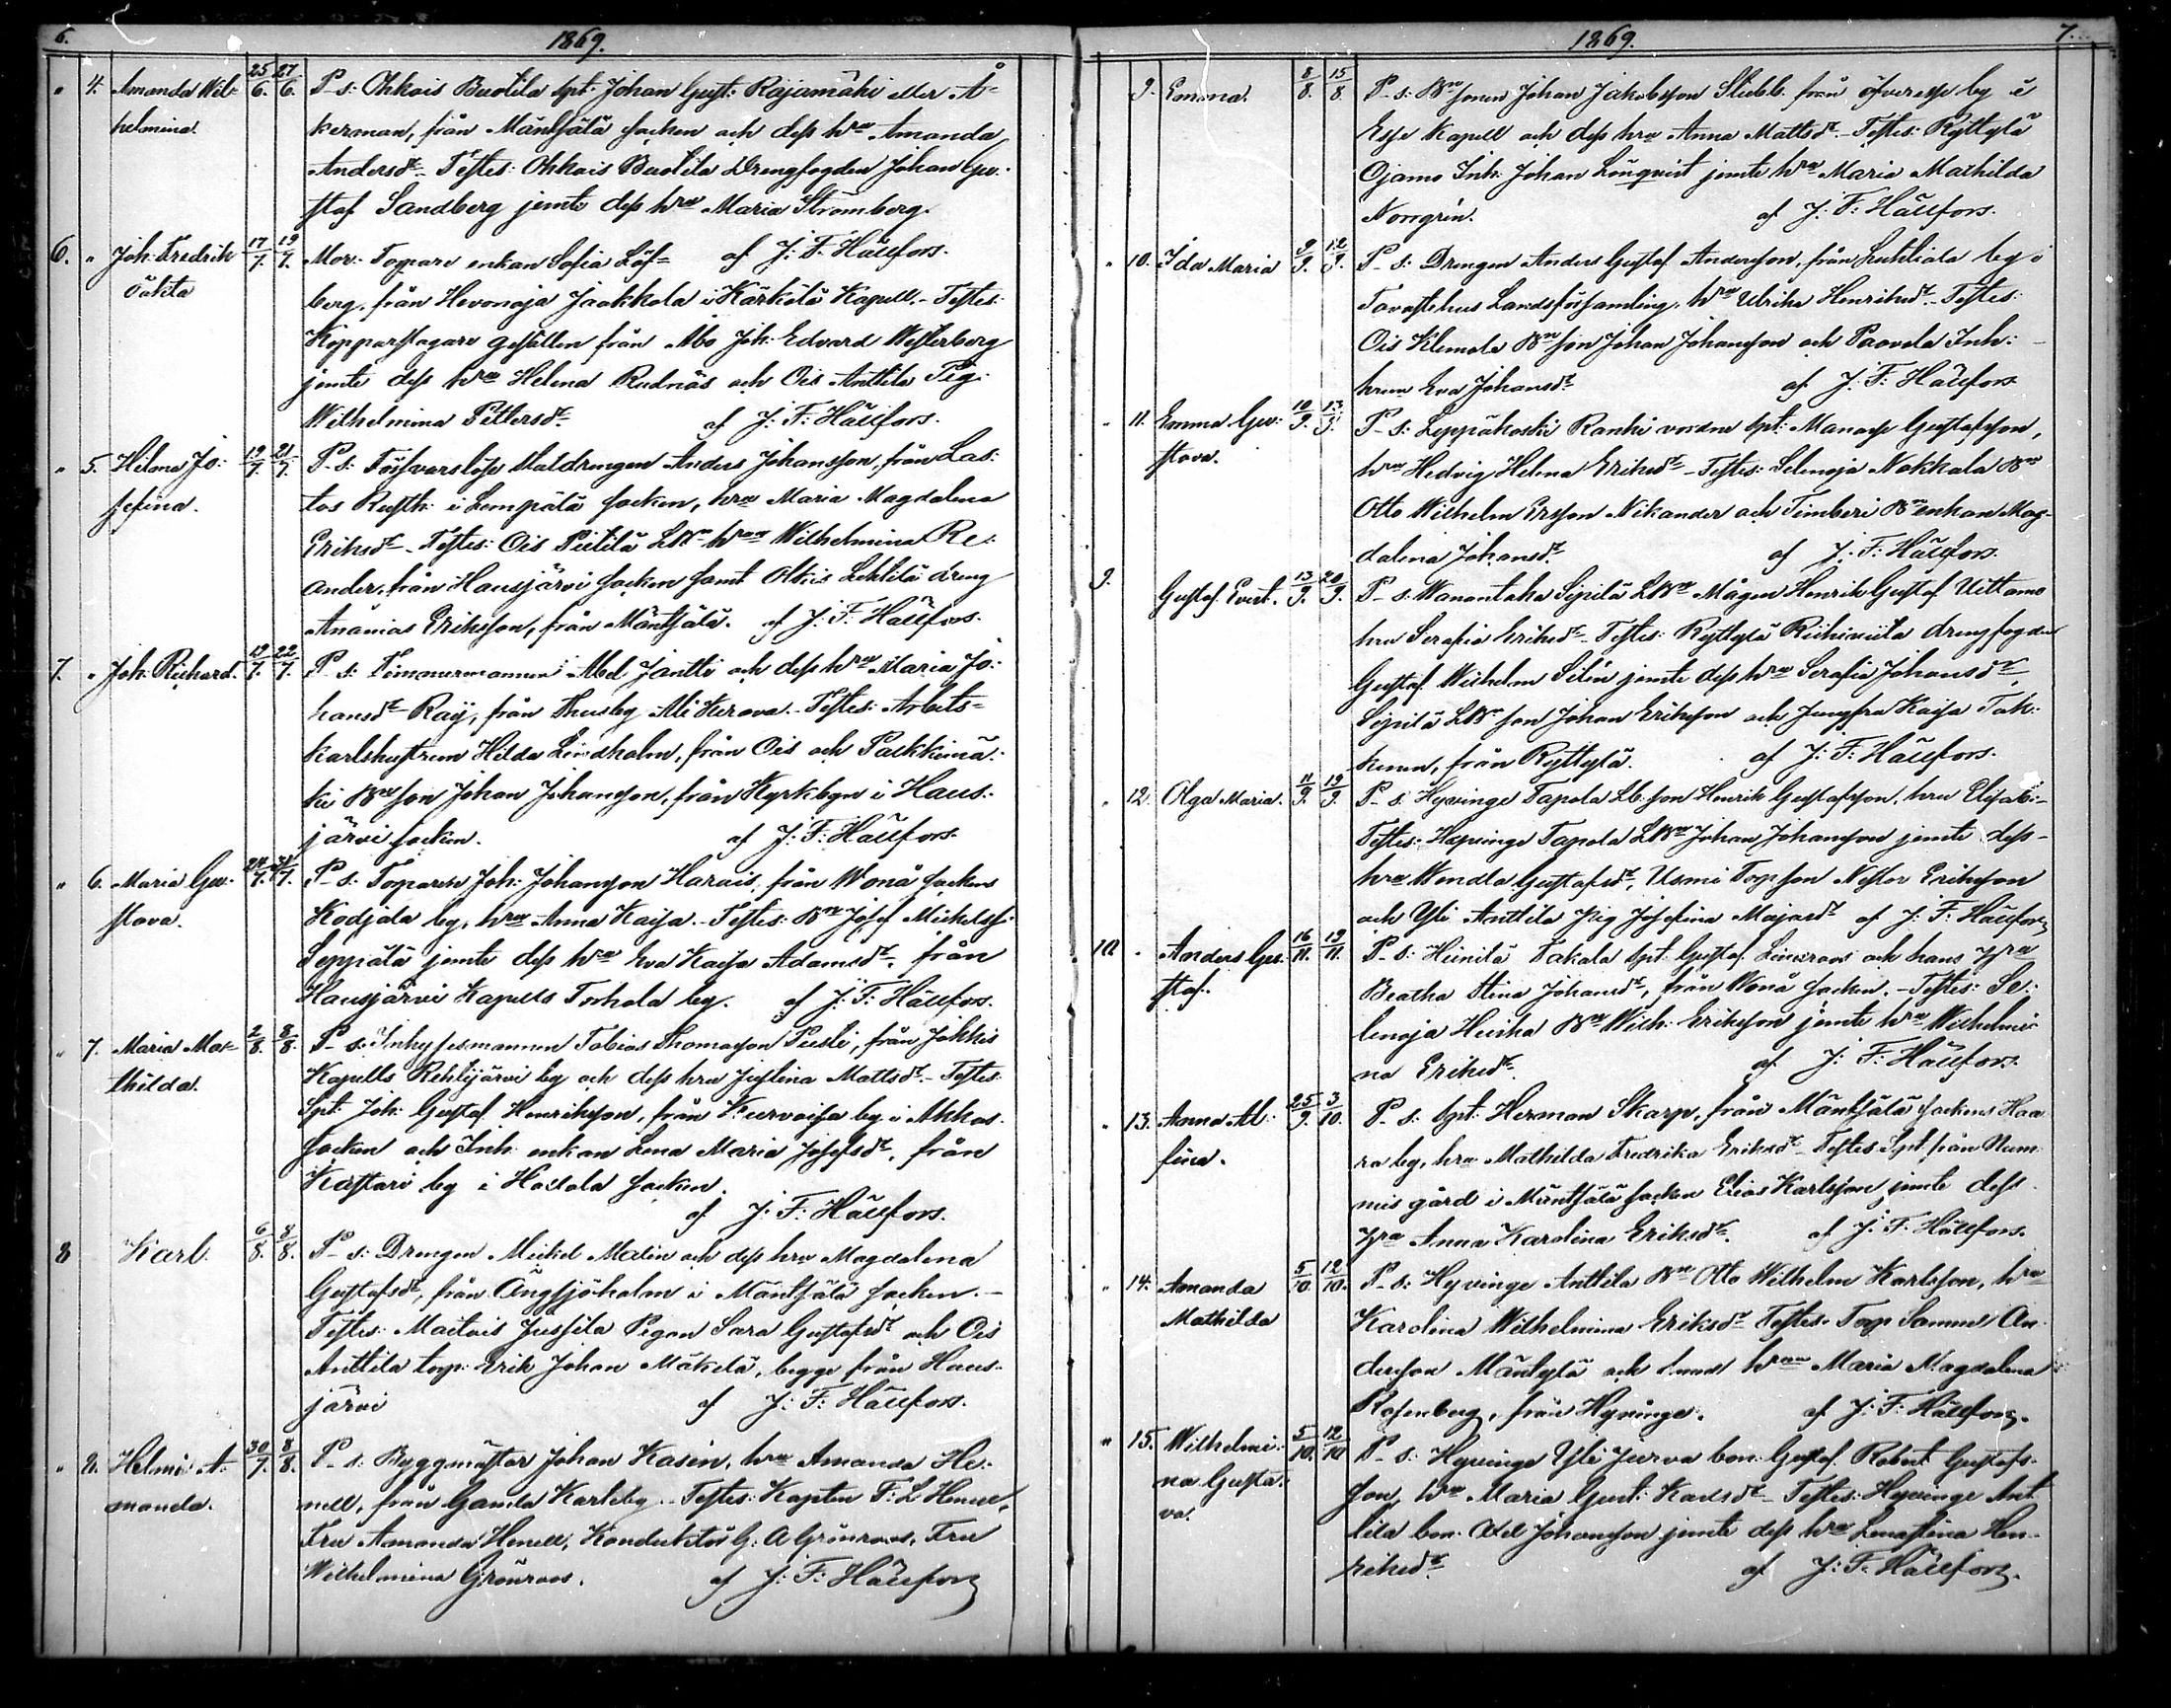 6. 1869.
" 4. Amanda Wil= 25/6. 27/6. P-s: Ohkois Buotila spt: Johan Gust: Rajamäki eller Å=
helmina. kerman, från Mäntsälä socken och dess hru Amanda
Andersdr. Testes: Ohkois Buotila Drengfogden Johan Gu:
staf Sandberg jemte dess hru Maria Strömberg.
6. " Joh: Fredrik 17/7. 19/7. Mor: Torpare enkan Sofia Löf= af J: F: Hällfors.
oäkta berg, från Hevonoja Jaakkola i Kärkölä Kapell.- Testes:
Kopparslagare gesällen från Åbo Joh: Edvard Westerberg
jemte dess hru Helena Rudnäs och Ois Anttila Pig:
Wilhelmina Pettersdr. af J: F: Hällfors.
" 5. Helena Jo: 19/7. 21/7. P-s: Försvarslöse Staldrengen Anders Johansson, från Las:
sefina. tos Rusth: i Lempälä socken, hru Maria Magdalena
Eriksdr.- Testes: Ois Pietilä hrun Wilhelmina Re:
ander, från Hausjärvi socken samt Oltis Lehtilä dreng
Ananias Eriksson, från Mäntsälä. af J: F: Hällfors.
7. " Joh: Richard. 19/7. 22/7. P-s: Timmermannen Abel Jantti och dess hru Maria Jo:
hansdr Raij, från Thusby Ali Kerava.- Testes: Arbets=
karlshustrun Hilda Lindholm, från Ois och Palkkimä:
ki Bdeson Johan Johansson, från Kyrkbyn i Haus:
järvi socken. af J: F: Hällfors.
" 6. Maria Gu: 24/7. P-s: Torparen Joh: Johansson Harvis, från Wonå sockens
stava. Kodjala by, hru Anna Kaisa.- Testes: Bde Josef Mickelss:
Seppälä jemte dess hru Eva Kaisa Adamsdr. från
Hausjärvi Kapells Torhola by. af J: F: Hällfors.
" 7. Maria Ma= 2/8. 8/8. P-s: Inhysesmannen Tobias Thomasson Piesti, från Jokkis
thilda. Kapells Rehtijärvi by och dess hru Justina Mattsdr.- Testes:
Spt: Joh: Gustaf Henriksson, från Kurvoisa by i Akkas
socken och Inh: enkan Lena Maria Josefsdr, från
Kastari by i Hollola socken.
af J: F: Hällfors.
8 Karl. 6/8. 8/8. P-s: Drengen Mickel Malin och dess hru Magdalena
Gustafsdr, från Ängsjöholm i Mäntsälä socken.-
Testes: Maitois Jussila Pigan Sara Gustafsdr och Ois
Anttila torp: Erik Johan Mäkelä, begge från Haus-
järvi af J: F: Hällfors.
" 8. Helmi A: 30/7. 8/8. P-s: Byggmästar Johan Kasén, hru Amanda He:
manda. nell, från Gamla Karleby.- Testes: Kapten F: L Henell,
Fru Amanda Henell, Konduktör G: A Grönroos, Fru
Wilhelmina Grönroos. af J: F: Hällfors
1869. 7.
9. Emma. 8/8. 15/8. P-s: Bdesonen Johan Jakobsson Stubb från öfveresse by i
Esse Kapell och dess hru Anna Mattsdr.- Testes: Ryttylä
Ojamo Inh: Johan Lönqvist jemte hru Maria Mathilda
Norrgrén. af J: F: Hällfors.
" 10. Ida Maria 9/9. 12/9. P-s: Drengen Anders Gustaf Andersson, från Luhtiala by i
Tavastehus Landsförsamling, hru Ulrika Henriksdr.- Testes:
Ois Klemola Bdeson Johan Johansson och Paavola Inh:
hrun Eva Johansdr. af J: F: Hällfors
" 11. Emma Gu: 10/9. 13/9. P-s: Leppäkoski Ranki vordne spt: Manasse Gustafsson,
stava. hru Hedvig Helena Eriksdr.- Testes: Selenoja Nokkala Bde
Otto Wilhelm Ersson Nikander och Timberi Bdeenkan Mag-
dalena Johansdr. af J: F: Hällfors.
9. Gustaf Evert. 13/9. 20/9. P-s: Wanantaka Sipilä Mågen Henrik Gustaf Uittamo
hru Serafia Eriksdr.- Testes: Ryttylä Riihiviita drengfogden
Gustaf Wilhelm Silén jemte dess hru Serafia Johansdr,
Sipilä son Johan Eriksson och Jungfru Kaisa Tak:
kinen, från Ryttylä. af J: F: Hällfors.
" 12. Olga Maria. 11/9. 19/9. P-s: Hyvinge Tapola Lb: son Henrik Gustafsson, hru Elisab:-
Testes: Hyvinge Tapola Johan Johansson jemte dess-
hru Wendla Gustafsdr, Usmi Torpson Nestor Eriksson
och Yli Anttila pig Josefina Majardr af J: F: Hällfors
10. " Anders Gu: 16/11. 19/11. P-s: Heinilä Takala spt: Gustaf Linnroos och hans hru
staf. Beatha Stina Johansdr, från Wonå socken.- Testes: Se:
lenoja Heikka Bde Wilh: Eriksson jemte hru Wilhelmi
na Eriksdr. af J: F: Hällfors.
" 13. Anna Al: 25/9. 3/10. P-s: spt: Herman Skarp, från Mäntsälä sockens Haa
fina. ra by, hru Mathilda Fredrika Eriksdr.- Testes Spt från Num
mis gård i Mäntsälä socken Elias Karlsson jemte dess
hru Anna Karolina Eriksdr. af J: F: Hällfors.
" 14. Amanda 5/10. 12/10. P-s: Hyvinge Anttila Bde Otto Wilhelm Karlsson, hru
Mathilda Karolina Wilhelmina Eriksdr Testes. Torp Samuel An
dersson Mäntylä och hrun Maria Magdalena
Rosenberg, från Hyvinge. af J: F: Hällfors.
" 15. Wilhelmi: 5/10. 12/10 P-s: Hyvinge Yli Jurva bon: Gustaf Robert Gustafs-
na Gusta: son, hru Maria Gust: Karlsdr.- Testes: Hyvinge Ant
va. tila bon: Axel Johansson jemte dess hru Lenastina Hen-
riksdr. af J: F: Hällfors.